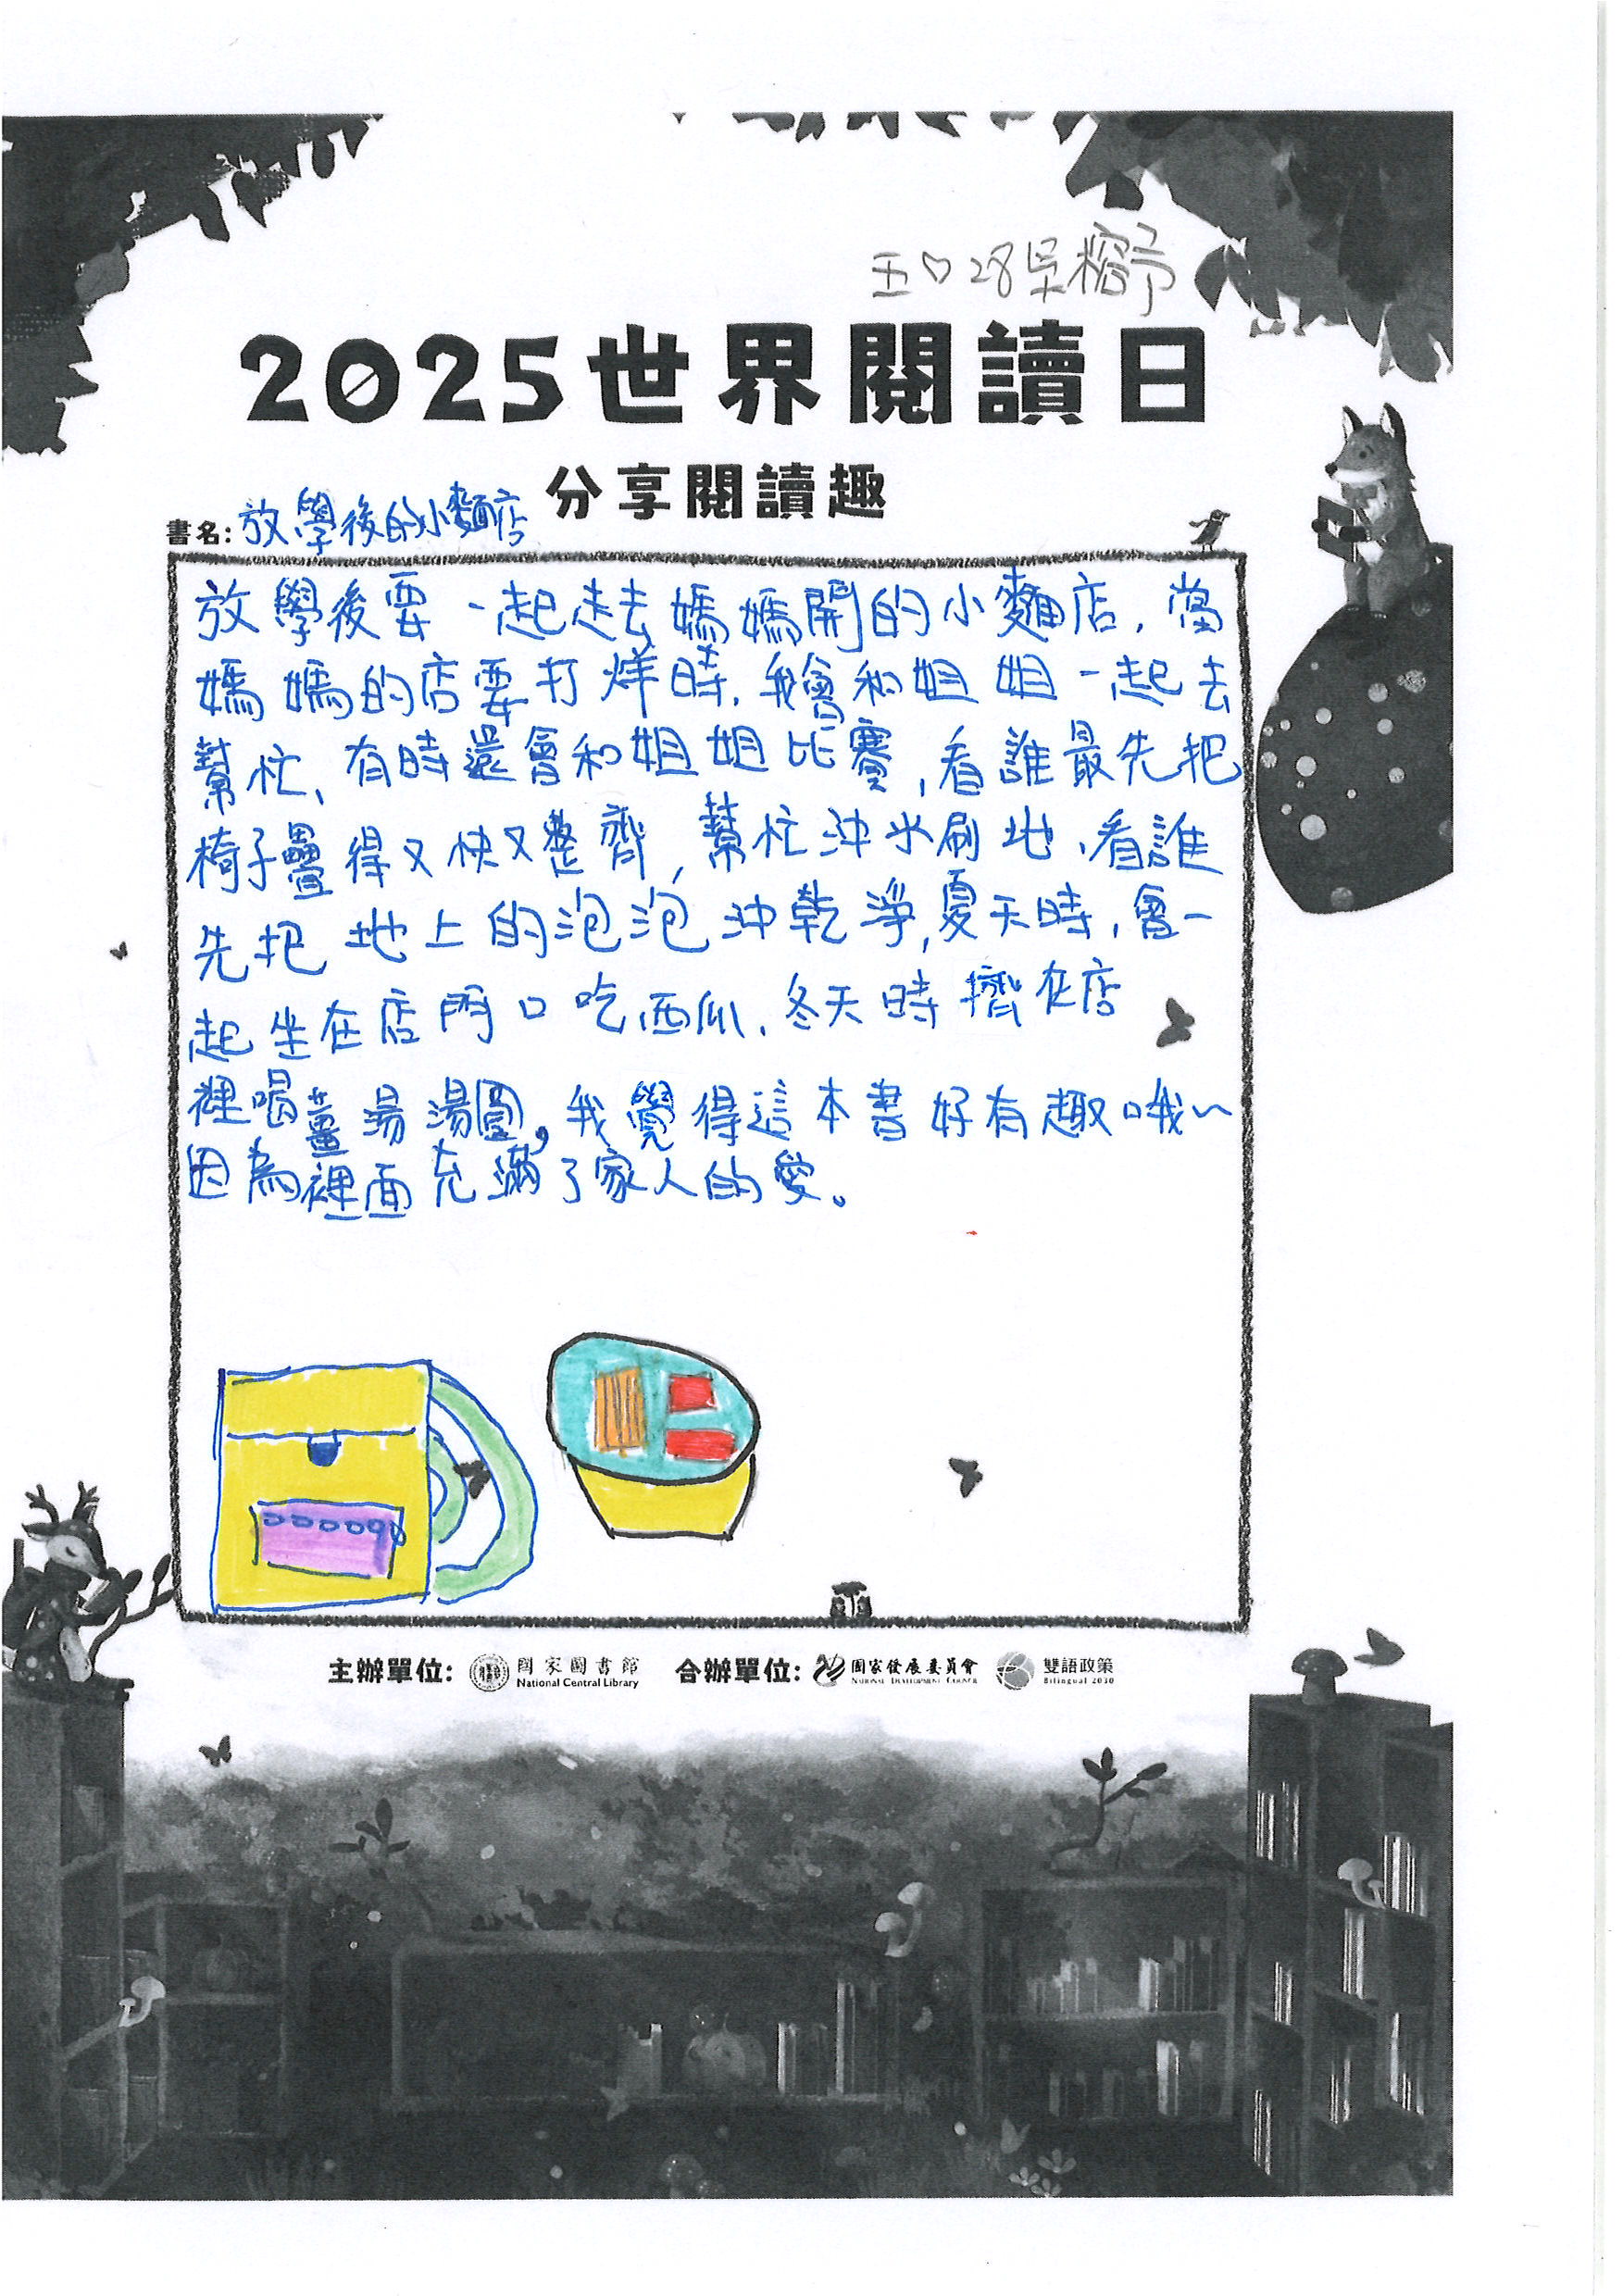 五口28吳榕予
2025世界閱讀日
分享閱讀趣
書名:放學後的小麵店
放學後要一起走去媽媽開的小麵店,當
媽媽的店要打烊時,我會和姐姐一起去
幫忙、有時還會和姐姐比賽,看誰最先把
椅子疊得又快又整齊,幫忙沖水刷地、看誰
先把地上的泡泡沖乾淨,夏天時,會一
起坐在店門口吃西瓜、冬天時擠在店
裡喝薑湯湯圓,我覺得這本書好有趣哦~
因為裡面充滿了家人的愛。
主辦單位: 國家圖書館 National Central Library 合辦單位: 國家發展委員會 NATIONAL DEVELOPMENT COUNCIL 雙語政策 Bilingual 2030